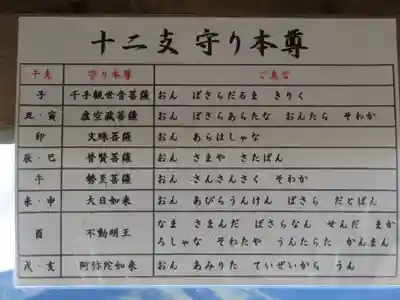 十二支 守り本尊
干支 守り本尊 ご真言
子 千手観世音菩薩 おん ばさらだるま きりく
丑・寅 虚空蔵菩薩 おん ばさらあらたな おんたら そわか
卯 文殊菩薩 おん あらはしゃな
辰・巳 普賢菩薩 おん さまや さたばん
午 勢至菩薩 おん さんさんさく そわか
未・申 大日如来 おん あびらうんけん ばさら だとばん
酉 不動明王 なま さまんだ ばさらなん せんだ まか
ろしゃな そわたや うんたらた かんまん
戌・亥 阿弥陀如来 おん あみりた ていぜいから うん